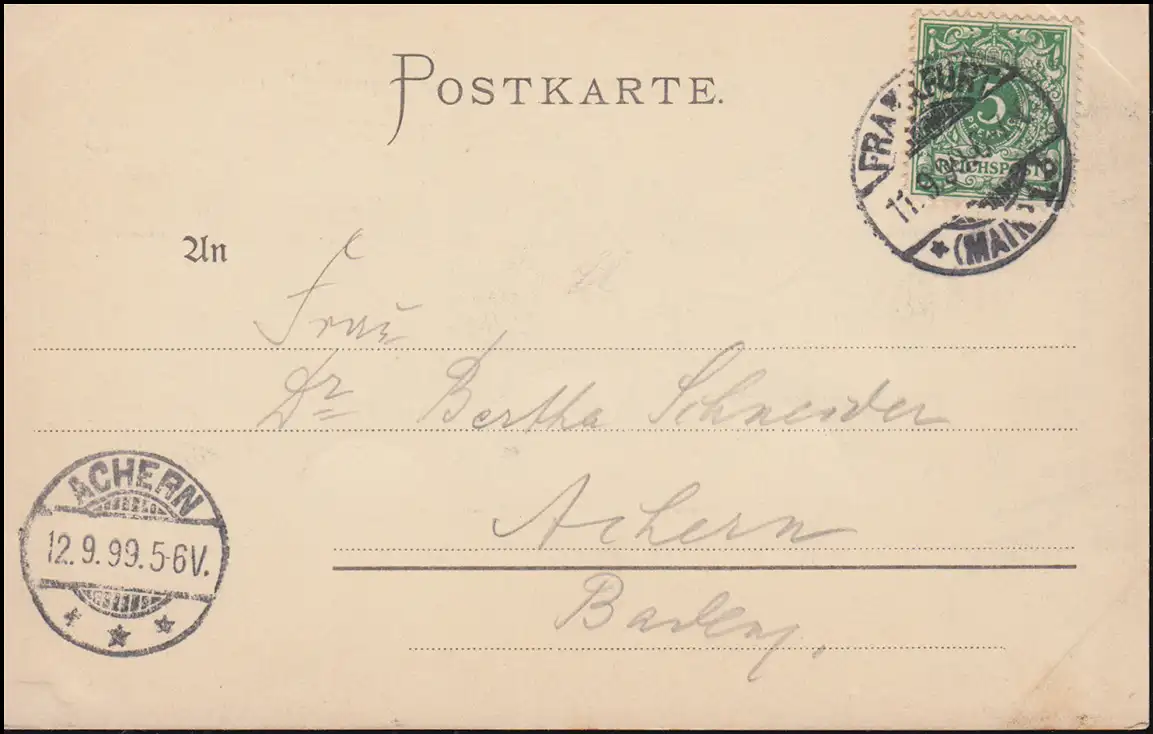 POSTKARTE.
5
PFENNIG
REICHSPOST
FRANKFURT
11.9.
* (MAIN)
An
Frau
Dr Bertha Schneider
Achern
Baden.
ACHERN
12.9.99.5-6V.